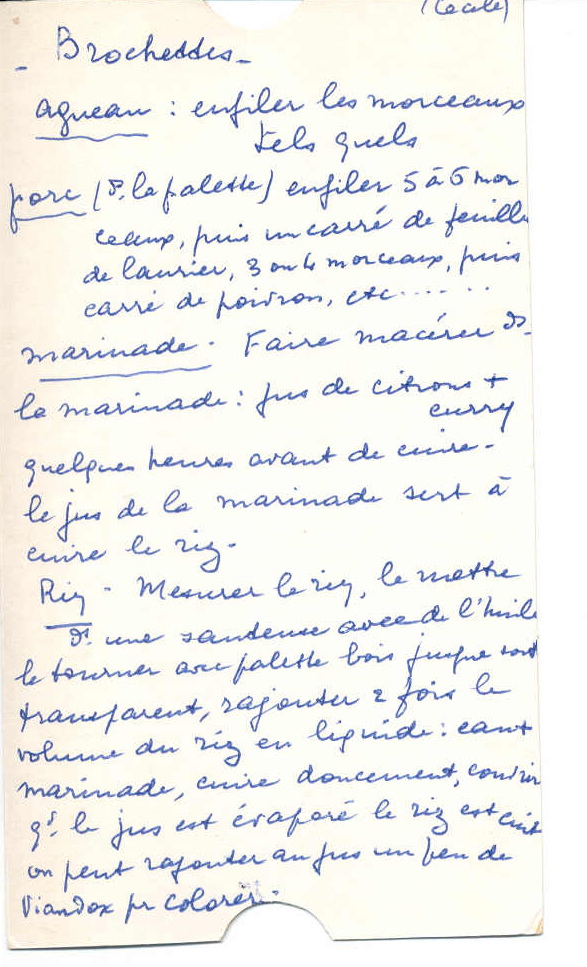 (Cécile)
- Brochettes -
agneau : enfiler les morceaux
tels quels
porc (ds la palette) enfiler 5 à 6 mor
ceaux, puis un carré de feuille
de laurier, 3 ou 4 morceaux, puis
carré de poivron, etc......
marinade. Faire macérer ds
la marinade : jus de citrons +
curry
quelques heures avant de cuire -
le jus de la marinade sert à
cuire le riz.
Riz - Mesurer le riz, le mettre
ds une sauteuse avec de l'huile
le tourner avec palette bois jusque soit
transparent, rajouter 2 fois le
volume du riz en liquide : eau +
marinade, cuire doucement, couvrir
qd le jus est évaporé le riz est cuit
on peut rajouter au jus un peu de
Viandox pr colorer.